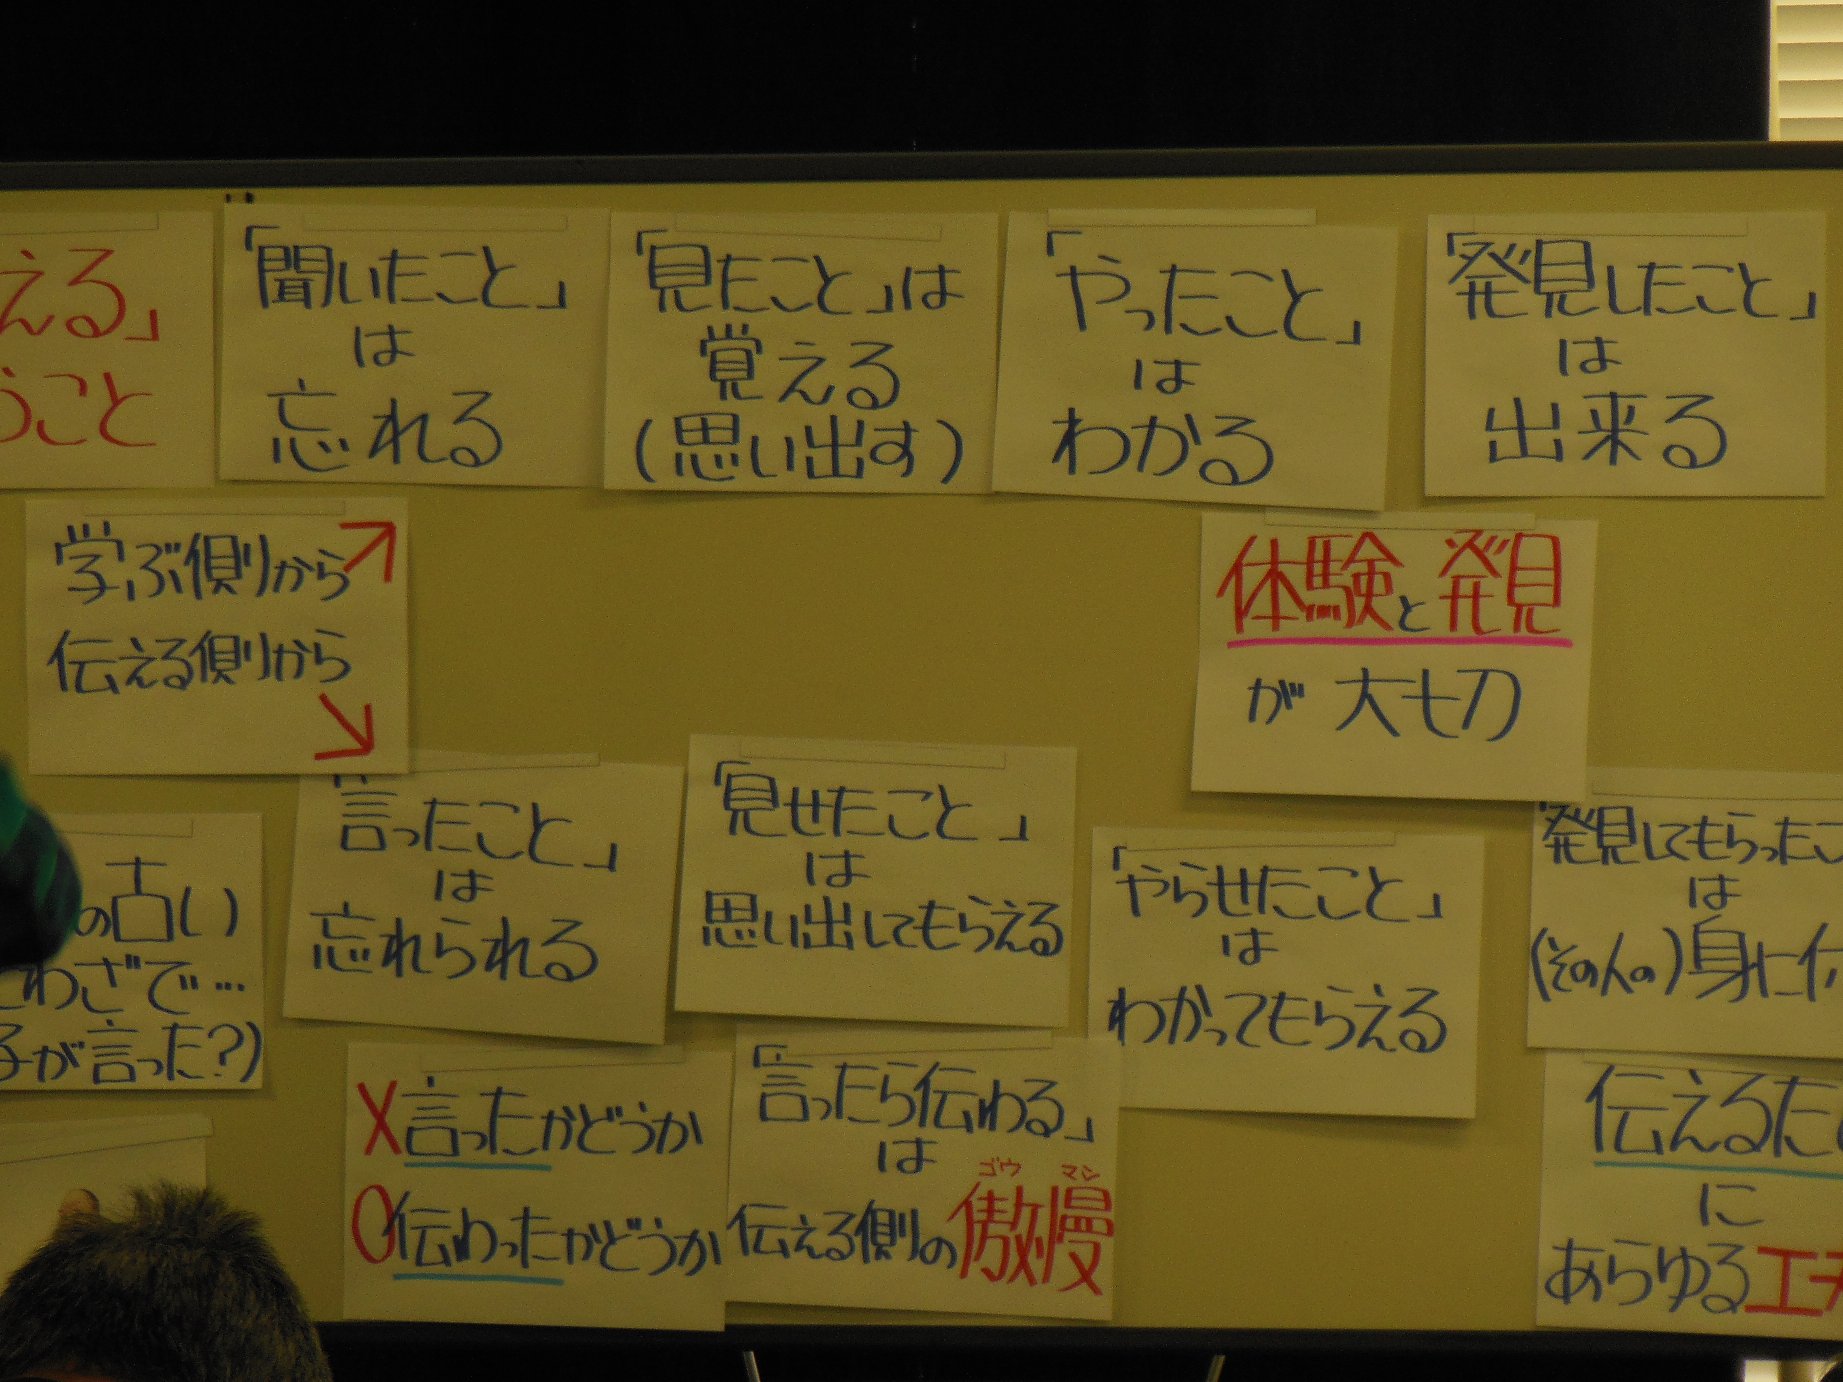 える」
うこと
「聞いたこと」
は
忘れる
「見たこと」は
覚える
(思い出す)
「やったこと」
は
わかる
「発見したこと」
は
出来る
学ぶ側から↗
伝える側から
↘
体験と発見
が大切
の古い
わざで…
子が言った?)
「言ったこと」
は
忘れられる
「見せたこと」
は
思い出してもらえる
「やらせたこと」
は
わかってもらえる
発見してもらったこ
は
(その人の)身に
X言ったかどうか
O伝わったかどうか
「言ったら伝わる」
は
ゴウ マン
伝える側の傲慢
伝えるた
に
あらゆるエ